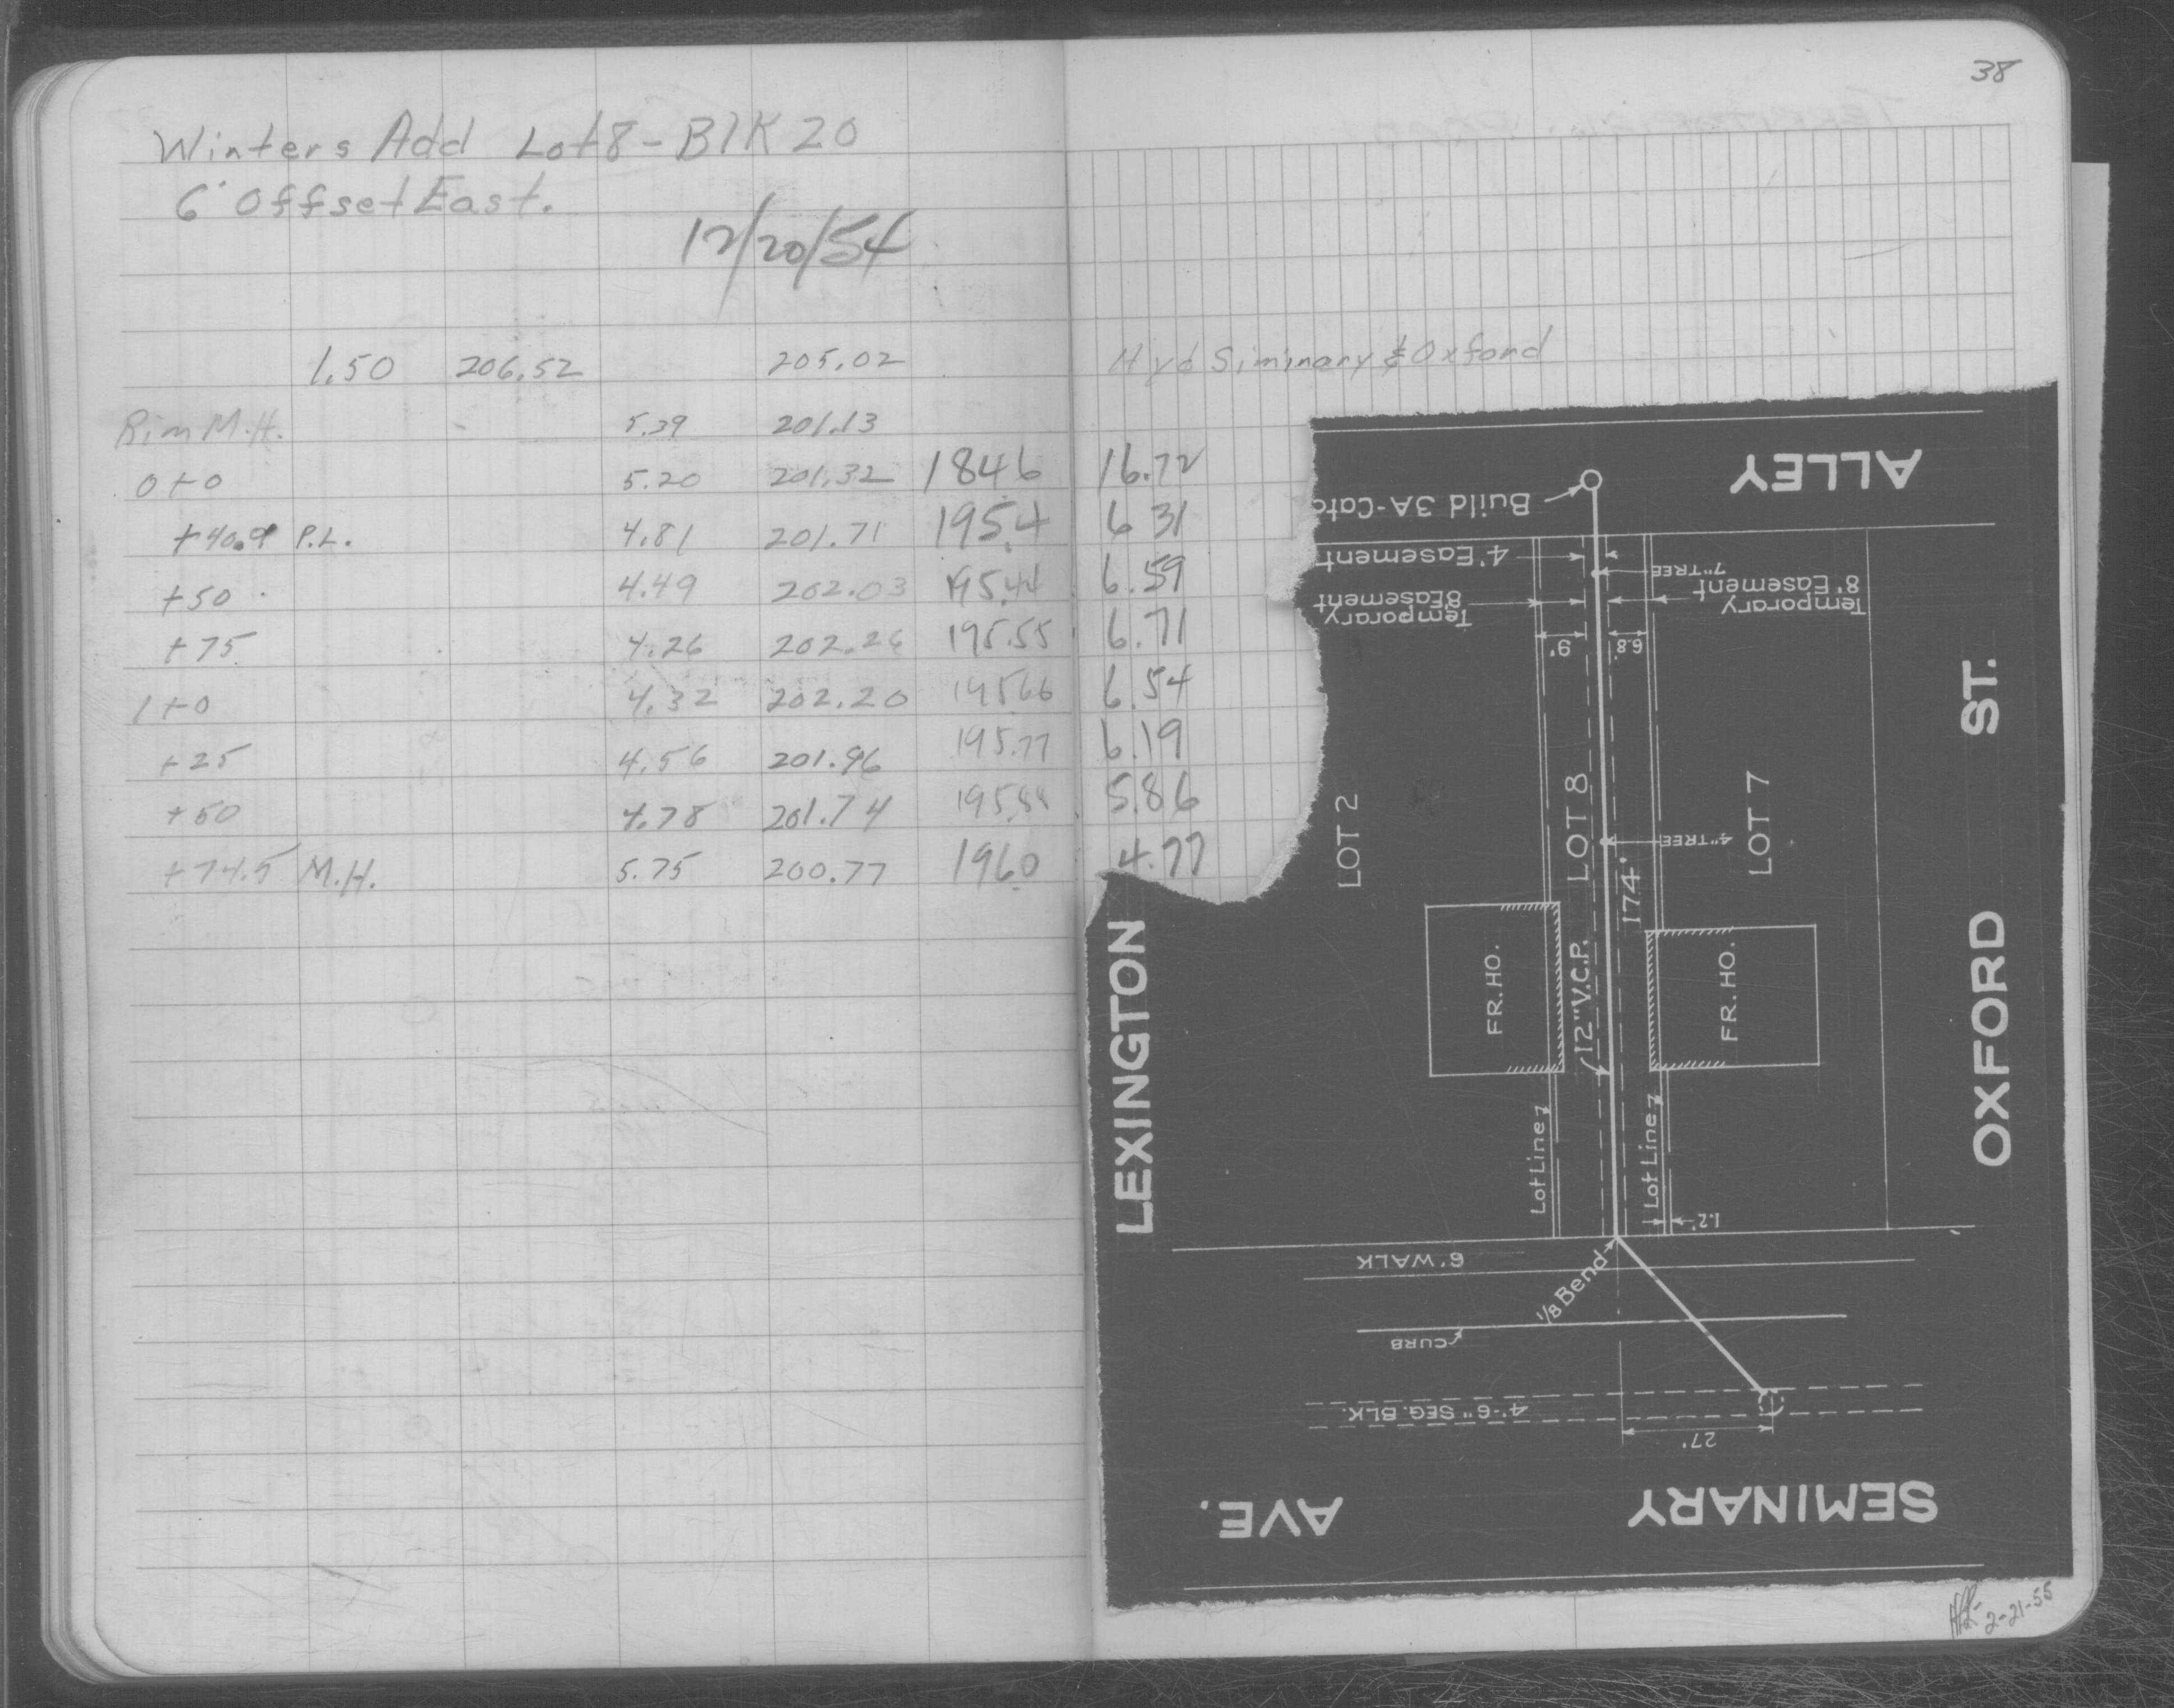 38
Winters Add Lot 8 - Blk 20
6' Offset East.
12/20/54
1.50 206.52 205.02 Hyd Siminary & Oxford
Rim M.H. 5.39 201.13
0+0 5.20 201.32 1846 16.72
+40.9 P.L. 4.81 201.71 195.4 6 31
+50 4.49 202.03 195.44 6.59
+75 4.26 202.26 195.55 6.71
1+0 4.32 202.20 195.66 6.54
+25 4.56 201.96 195.77 6.19
+50 4.78 201.74 195.88 5.86
+74.5 M.H. 5.75 200.77 196.0 4.77
ALLEY
Build 3A-Catc
4' Easement
7" TREE
Temporary
8' Easement
Temporary
8' Easement
9'
6.8'
ST.
LOT 2
LOT 8
LOT 7
4" TREE
174'
LEXINGTON
FR. HO.
12" V.C.P.
FR. HO.
OXFORD
Lot Line
Lot Line
1.2'
6' WALK
1/8 Bend
CURB
4'-6" SEG. BLK.
27'
SEMINARY
AVE.
2-21-55